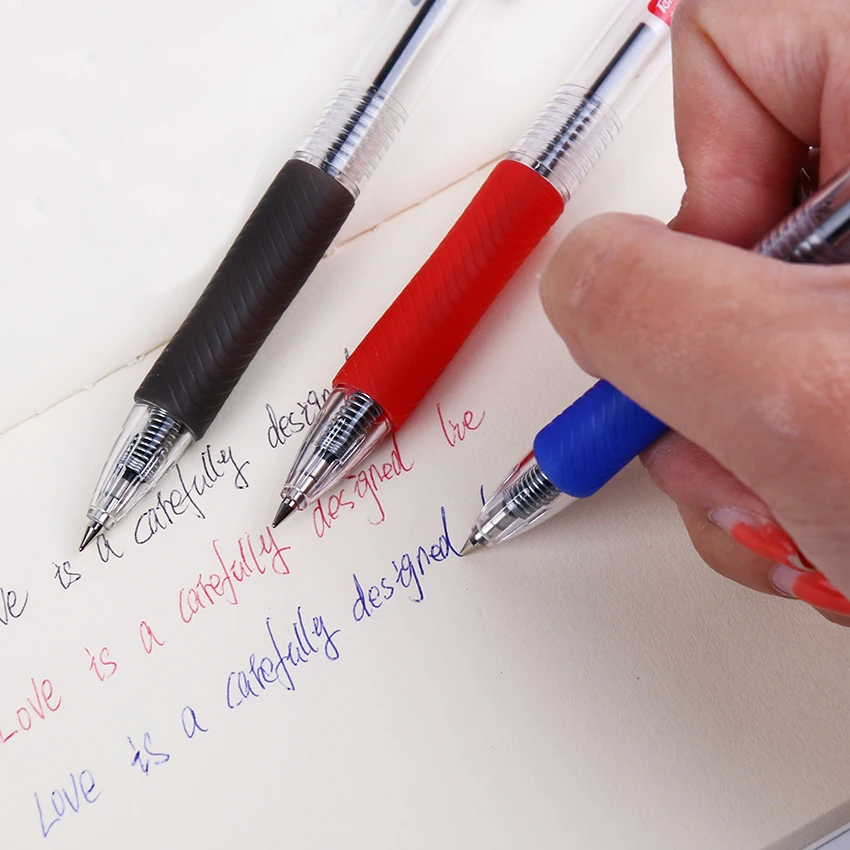 ve is a carefully design
Love is a carefully designed lie
Love is a carefully designed